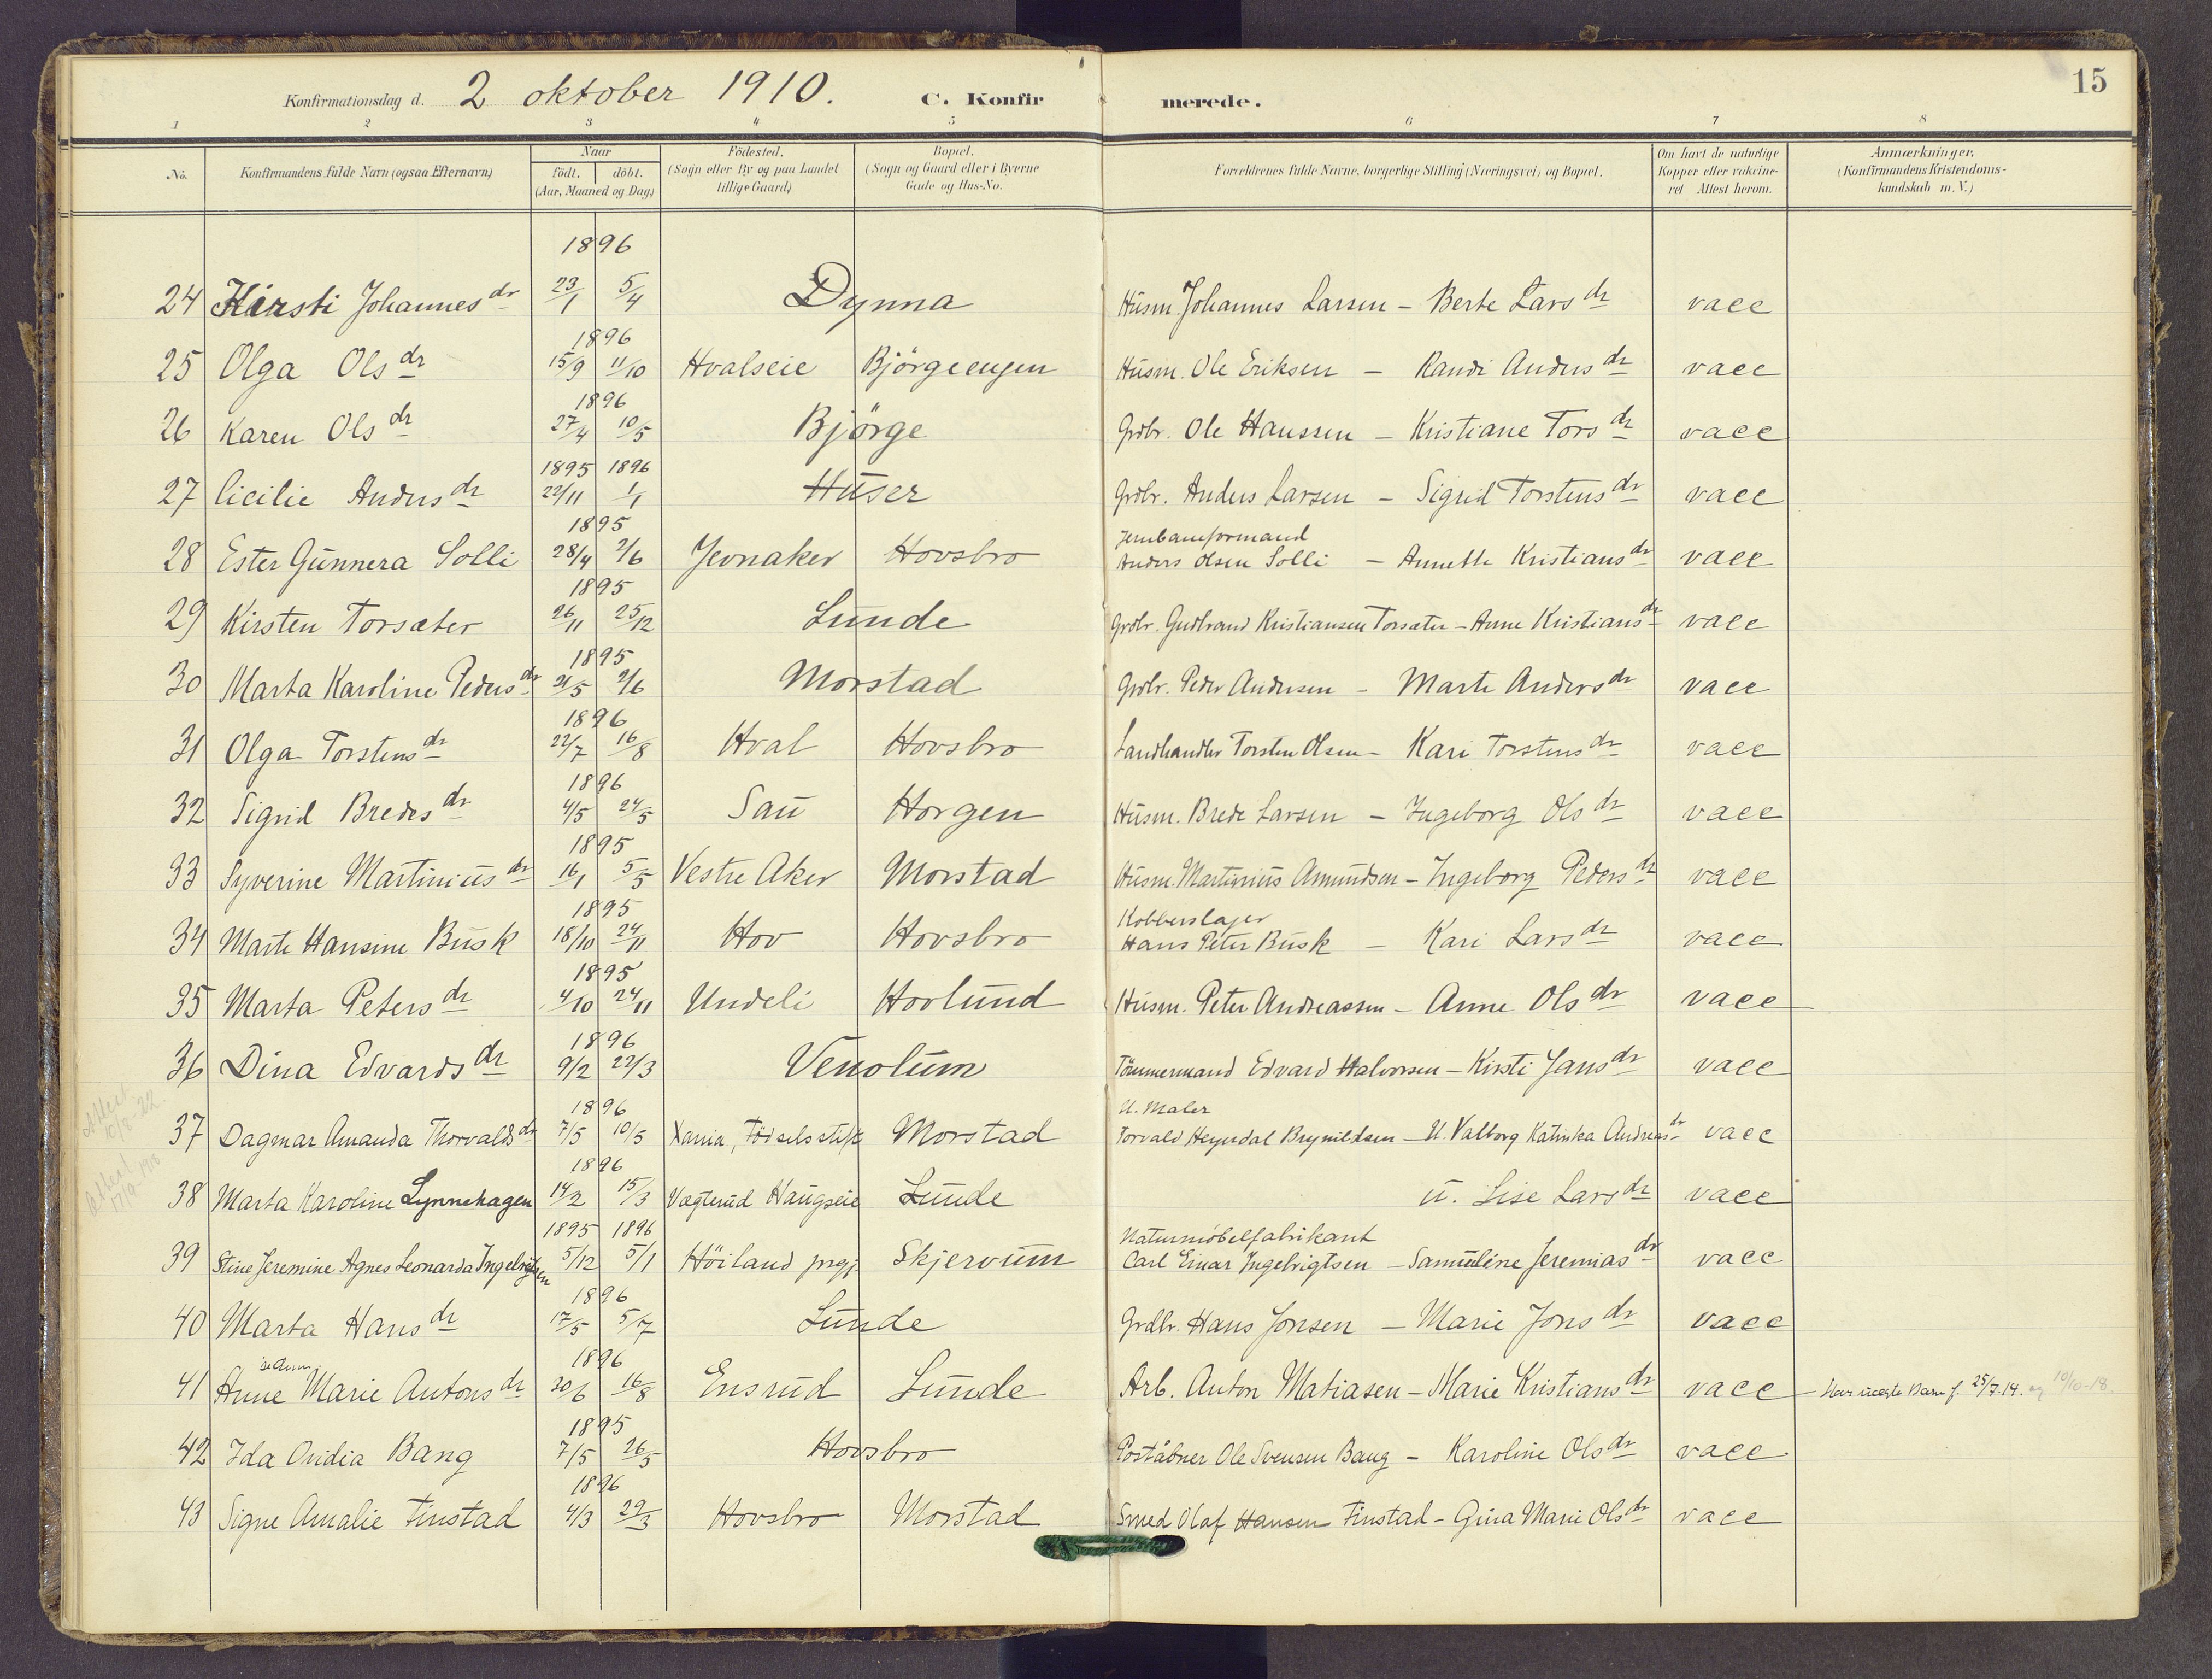 Konfirmationsdag d. 2 oktober 1910. C. Konfir merede. 15
1 2 3 4 5 6 7 8
No. Konfirmandens fulde Navn (ogsaa Efternavn) Naar født. døbt. (Aar, Maaned og Dag) Fødested. (Sogn eller By og paa Landet tillige Gaard) Bopæl. (Sogn og Gaard eller i Byerne Gade og Hus-No. Forældrenes fulde Navne, borgerlige Stilling (Næringsvei) og Bopæl. Om havt de naturlige Kopper eller vakcineret Attest herom. Anmærkninger. (Konfirmandens Kristendomskundskab m. V.)
1896
24 Kirsti Johannes dr 23/1 5/4 Dynna Husm. Johannes Larsen - Berte Lars dr vacc
1896
25 Olga Ols dr 15/9 11/10 Hvalseie Bjørgeengen Husm. Ole Eriksen - Randi Anders dr vacc
1896
26 Karen Ols dr 27/4 10/5 Bjørge Grdbr. Ole Hanssen - Kristiane Tors dr vacc
1895 1896
27 Cicilie Anders dr 22/11 1/1 Huser Grdbr. Anders Larsen - Sigrid Torstens dr vacc
1895 Jernbaneformand
28 Ester Gunnera Solli 28/4 2/6 Jevnaker Hovsbro Anders Olsen Solli - Annette Kristians dr vacc
1895
29 Kirsten Torsæter 26/11 25/12 Lunde Grdbr. Gudbrand Kristiansen Torsæter - Anne Kristians dr vacc
1895
30 Marta Karoline Peders dr 21/5 2/6 Morstad Grdbr. Peder Andersen - Marte Anders dr vacc
1896
31 Olga Torstens dr 22/7 16/8 Hval Hovsbro Landhandler Torsten Olsen - Kari Torstens dr vacc
1896
32 Sigrid Bredes dr 4/5 24/5 Sau Horgen Husm. Brede Larsen - Ingeborg Ols dr vacc
1895
33 Syverine Martinius dr 16/1 5/5 Vestre Aker Morstad Husm. Martinius Amundsen - Ingeborg Peders dr vacc
1895 Kobberslager
34 Marte Hansine Busk 18/10 24/11 Hov Hovsbro Hans Peter Busk - Kari Lars dr vacc
1895
35 Marta Peters dr 4/10 24/11 Undeli Hovlund Husm. Peter Andreassen - Anne Ols dr vacc
1896
36 Dina Edvards dr 9/2 22/3 Venolum Tømmermand Edvard Halvorsen - Kirsti Jans dr vacc
1896 U. Maler
37 Dagmar Amanda Thorvalds dr 7/5 10/5 Xania, Fødselsstift. Morstad Torvald Heyerdal Brynildsen - U. Valborg Katinka Andreas dr vacc
1896
38 Marta Karoline Lynnehagen 14/2 15/3 Vægterud Haugseie Lunde u. Lise Lars dr vacc
1895 1896 Naturmøbelfabrikant
39 Stine Jeremine Agnes Leonarda Ingebrigtsen 5/12 5/1 Høiland prgj. Skjervum Carl Einar Ingebrigtsen - Samuline Jeremias dr vacc
1896
40 Marta Hans dr 17/5 5/7 Lunde Grdbr. Hans Jonsen - Marie Jons dr vacc
1896
41 Anne Marie Antons dr 20/6 16/8 Ensrud Lunde Arb. Anton Matiasen - Marie Kristians dr vacc Har uægte Barn f. 25/7.14. og 10/10-18.
1895
42 Ida Ovidia Bang 7/5 26/5 Hovsbro Poståbner Ole Svensen Bang - Karoline Ols dr vacc
1896
43 Signe Amalie Finstad 4/3 29/3 Hovsbro Morstad Smed Olaf Hansen Finstad - Gina Marie Ols dr vacc